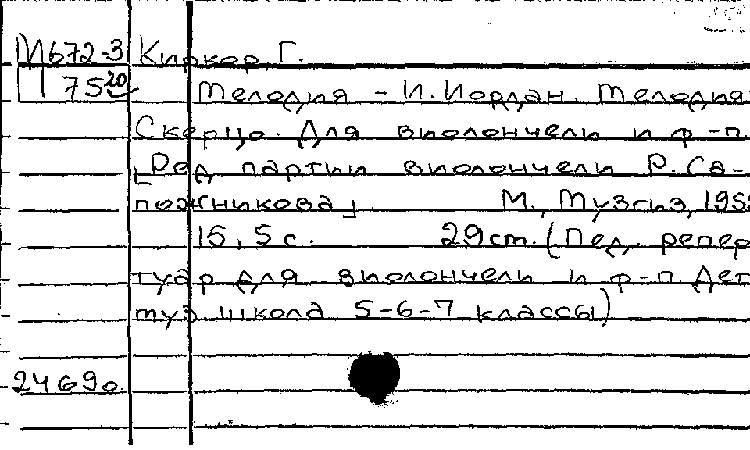 М672-3 Киркор, Г.
П 75 20 Мелодия - И. Иордан. Мелодия
Скерцо. Для виолончели и ф-п.
[Ред партии виолончели Р. Са-
пожникова] М., Музгиз, 195
15, 5 с. 29 ст. (Пед. репер
туар для виолончели и ф-п Дет
муз школа 5-6-7 классы)
24690